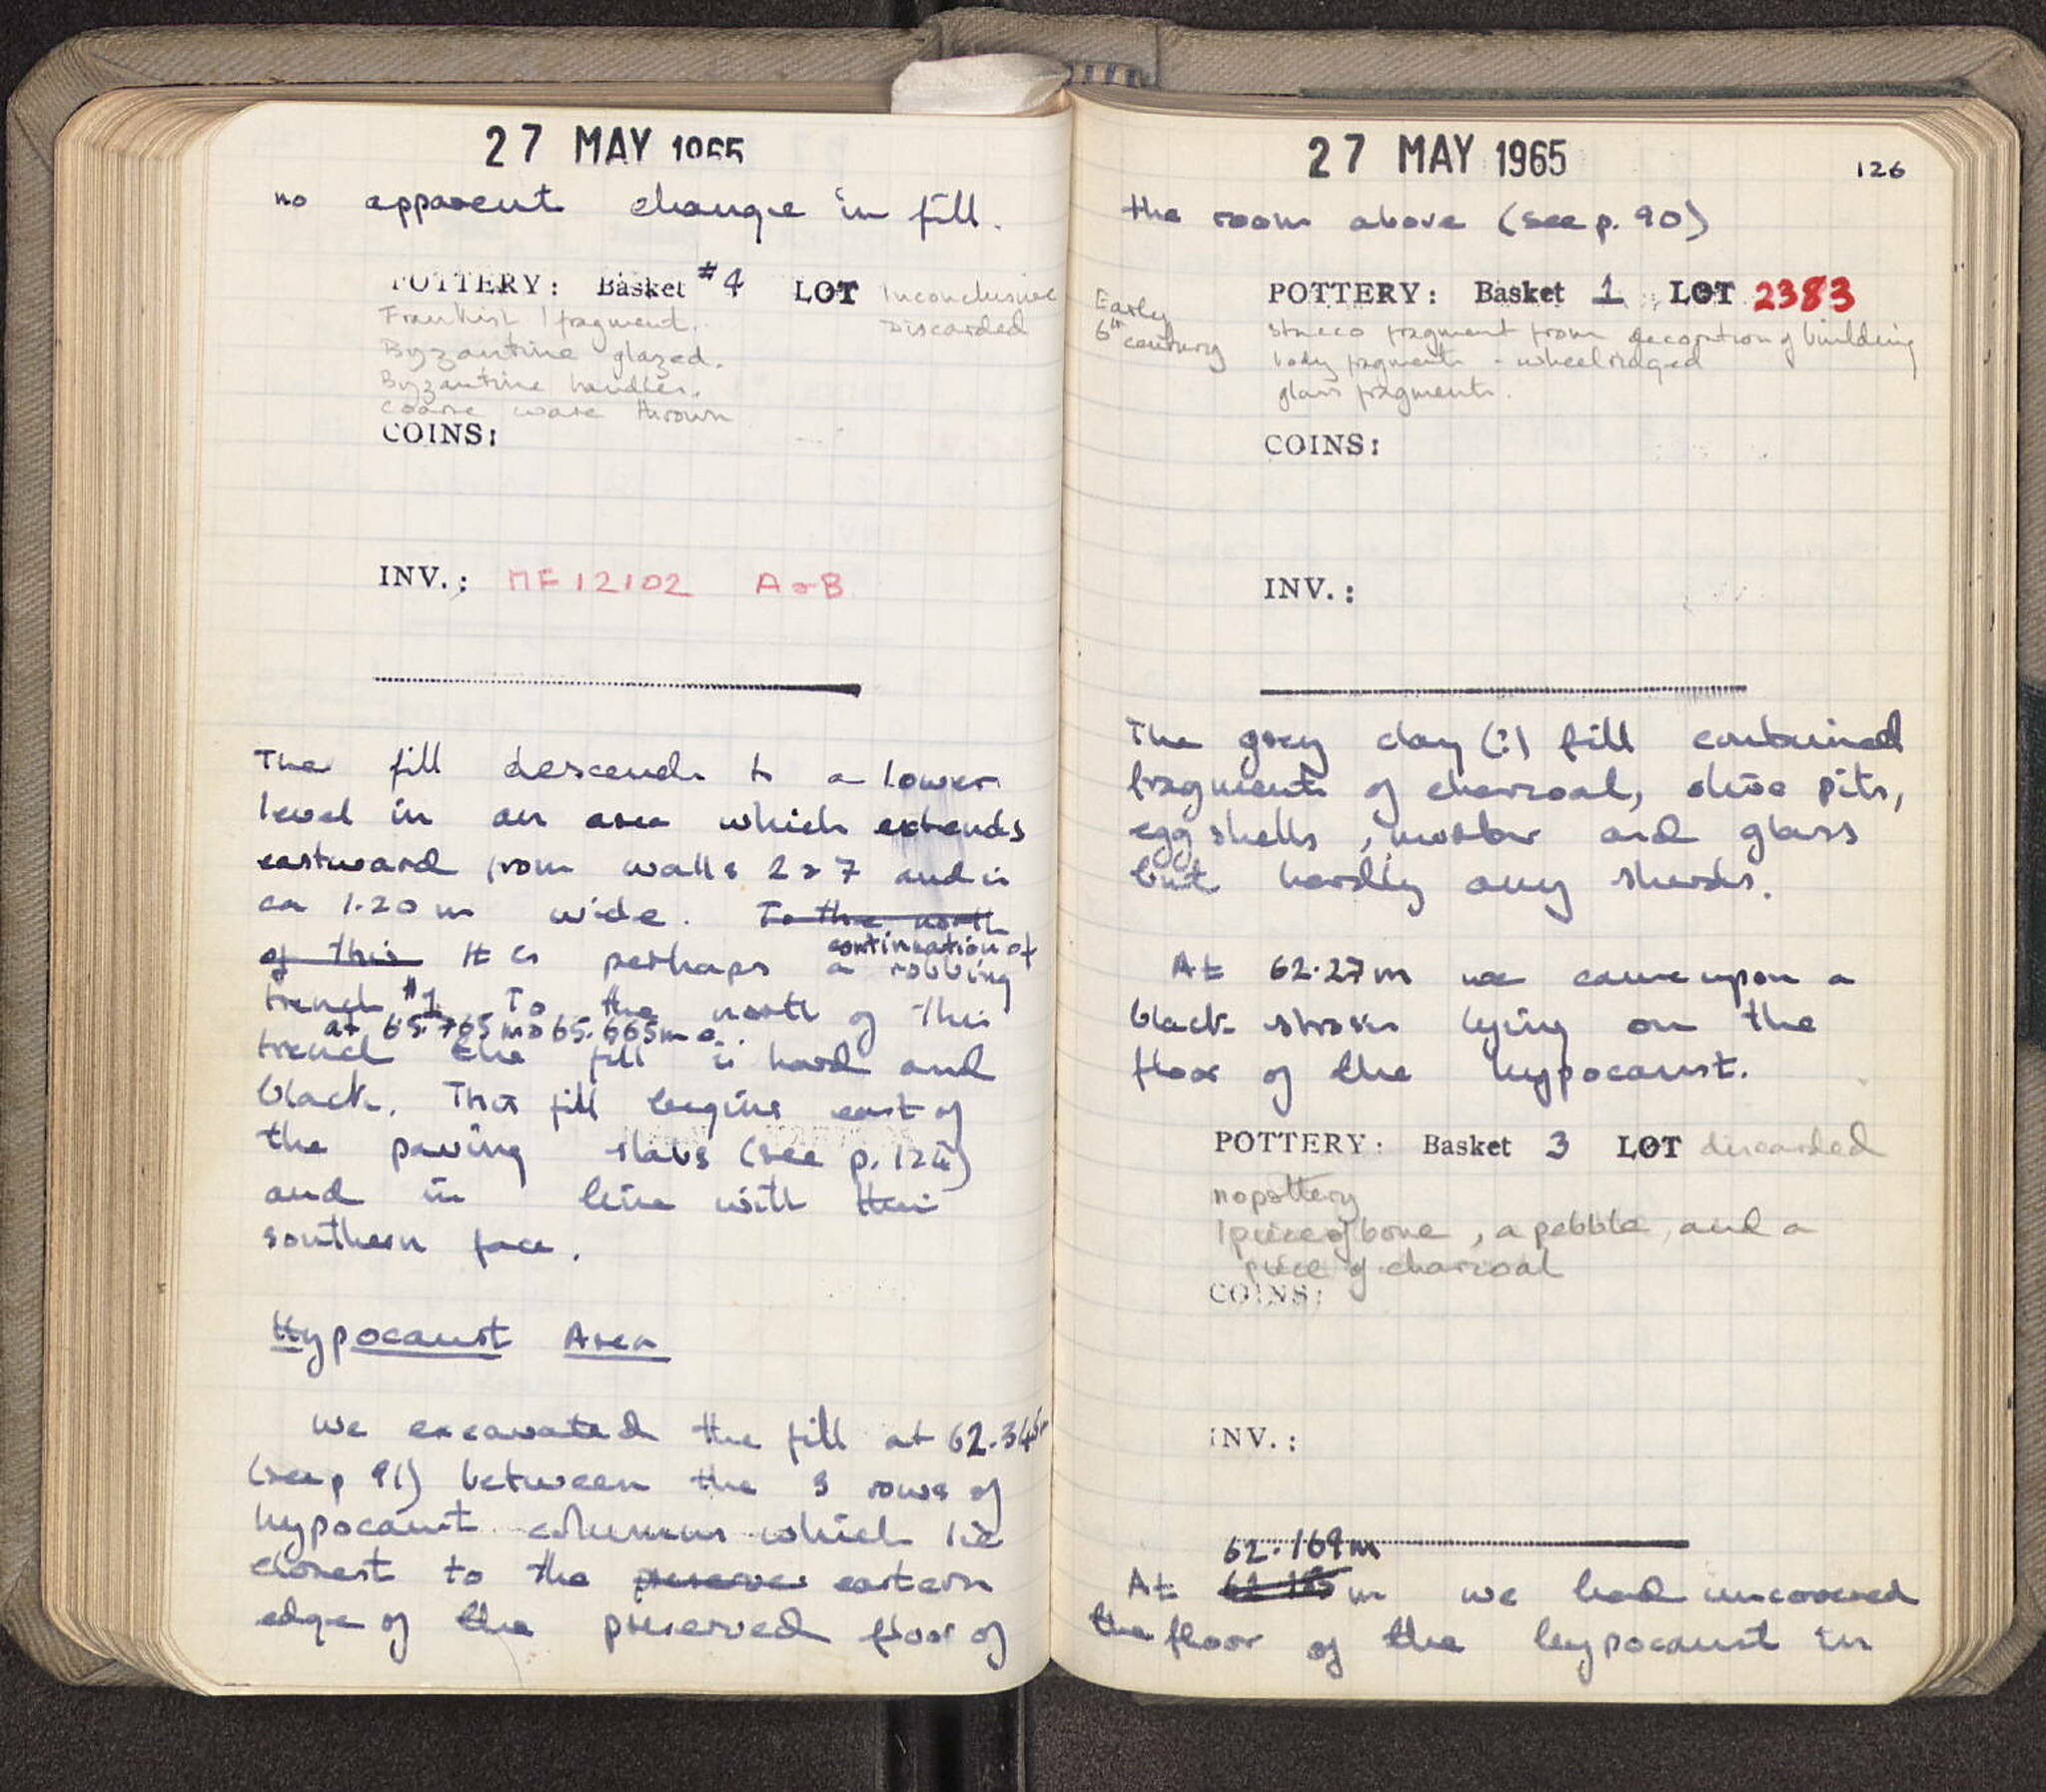 27 MAY 1965
no apparent change in fill.
POTTERY: Basket #4 LOT Inconclusive
Discarded
Frankish 1 fragment.
Byzantine glazed.
Byzantine handles.
coarse ware thrown
COINS:
INV.: MF 12102 A+B
The fill descends to a lower
level in an area which extends
eastward from walls 2 & 7 and is
ca 1.20 m wide. To the north
of this It is perhaps a continuation of robbing
trench #1. To the north of this
at 65.765m & 65.665m
trench the fill is hard and
black. This fill begins east of
the paving slabs (see p. 124)
and in line with their
southern face.
Hypocaust Area
We excavated the fill at 62.345m
(see p 91) between the 3 rows of
hypocaust columns which lie
closest to the preserves eastern
edge of the preserved floor of
27 MAY 1965
126
the room above (see p. 90)
Early
6th century
POTTERY: Basket 1 LOT 2383
stucco fragment from decoration of building
body fragments - wheelridged
glass fragments.
COINS:
INV.:
The grey clay (?) fill contained
fragments of charcoal, olive pits,
egg shells, mortar and glass
but hardly any sherds.
At 62.27m we came upon a
black stratum lying on the
floor of the hypocaust.
POTTERY: Basket 3 LOT discarded
no pottery
1 piece of bone, a pebble, and a
piece of charcoal
COINS:
INV.:
62.169m
At m we had uncovered
the floor of the hypocaust in